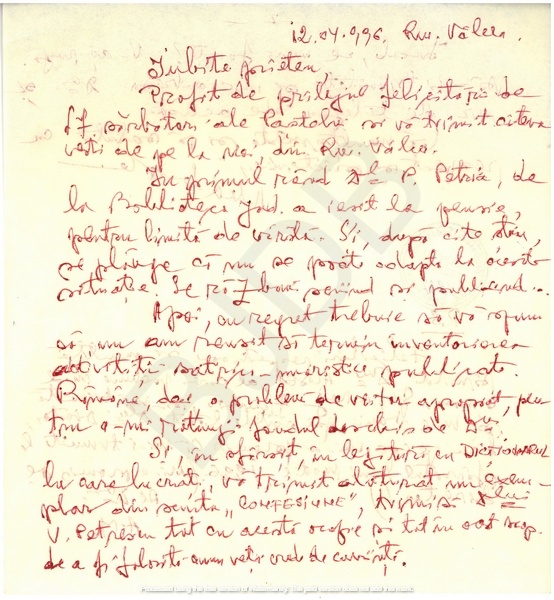 12.04.996, Rm. Vâlcea.
Iubite prieten,
Profit de prilejul felicitării de
Sf. sărbători ale Paştelui să vă trimit câteva
veşti de pe la noi, din Rm. Vâlcea.
În primul rând Dl P. Petria, de
la Biblioteca Jud. a ieşit la pensie,
pentru limită de vârstă. Şi, după câte ştiu,
se plânge că nu se poate adapta la această
situaţie. Se scriind şi publicând...
Apoi, cu regret trebuie să vă spun
că nu am reuşit să termin inventarierea
activităţii satirico-umoristice publicate.
Rămâne, deci o problemă de viitor apropiat, pen-
tru a-mi întregi fondul deschis de Dv.
Şi, în sfârşit, în legătură cu DICŢIONARUL
la care lucraţi, vă trimit alăturat un exem-
plar din schiţa „CONFESIUNE", trimisă Dlui
V. Petrescu tot cu acestă ocazie şi tot în ast scop.
de a fi folosită cum veţi crede de cuviinţă.
BJDD